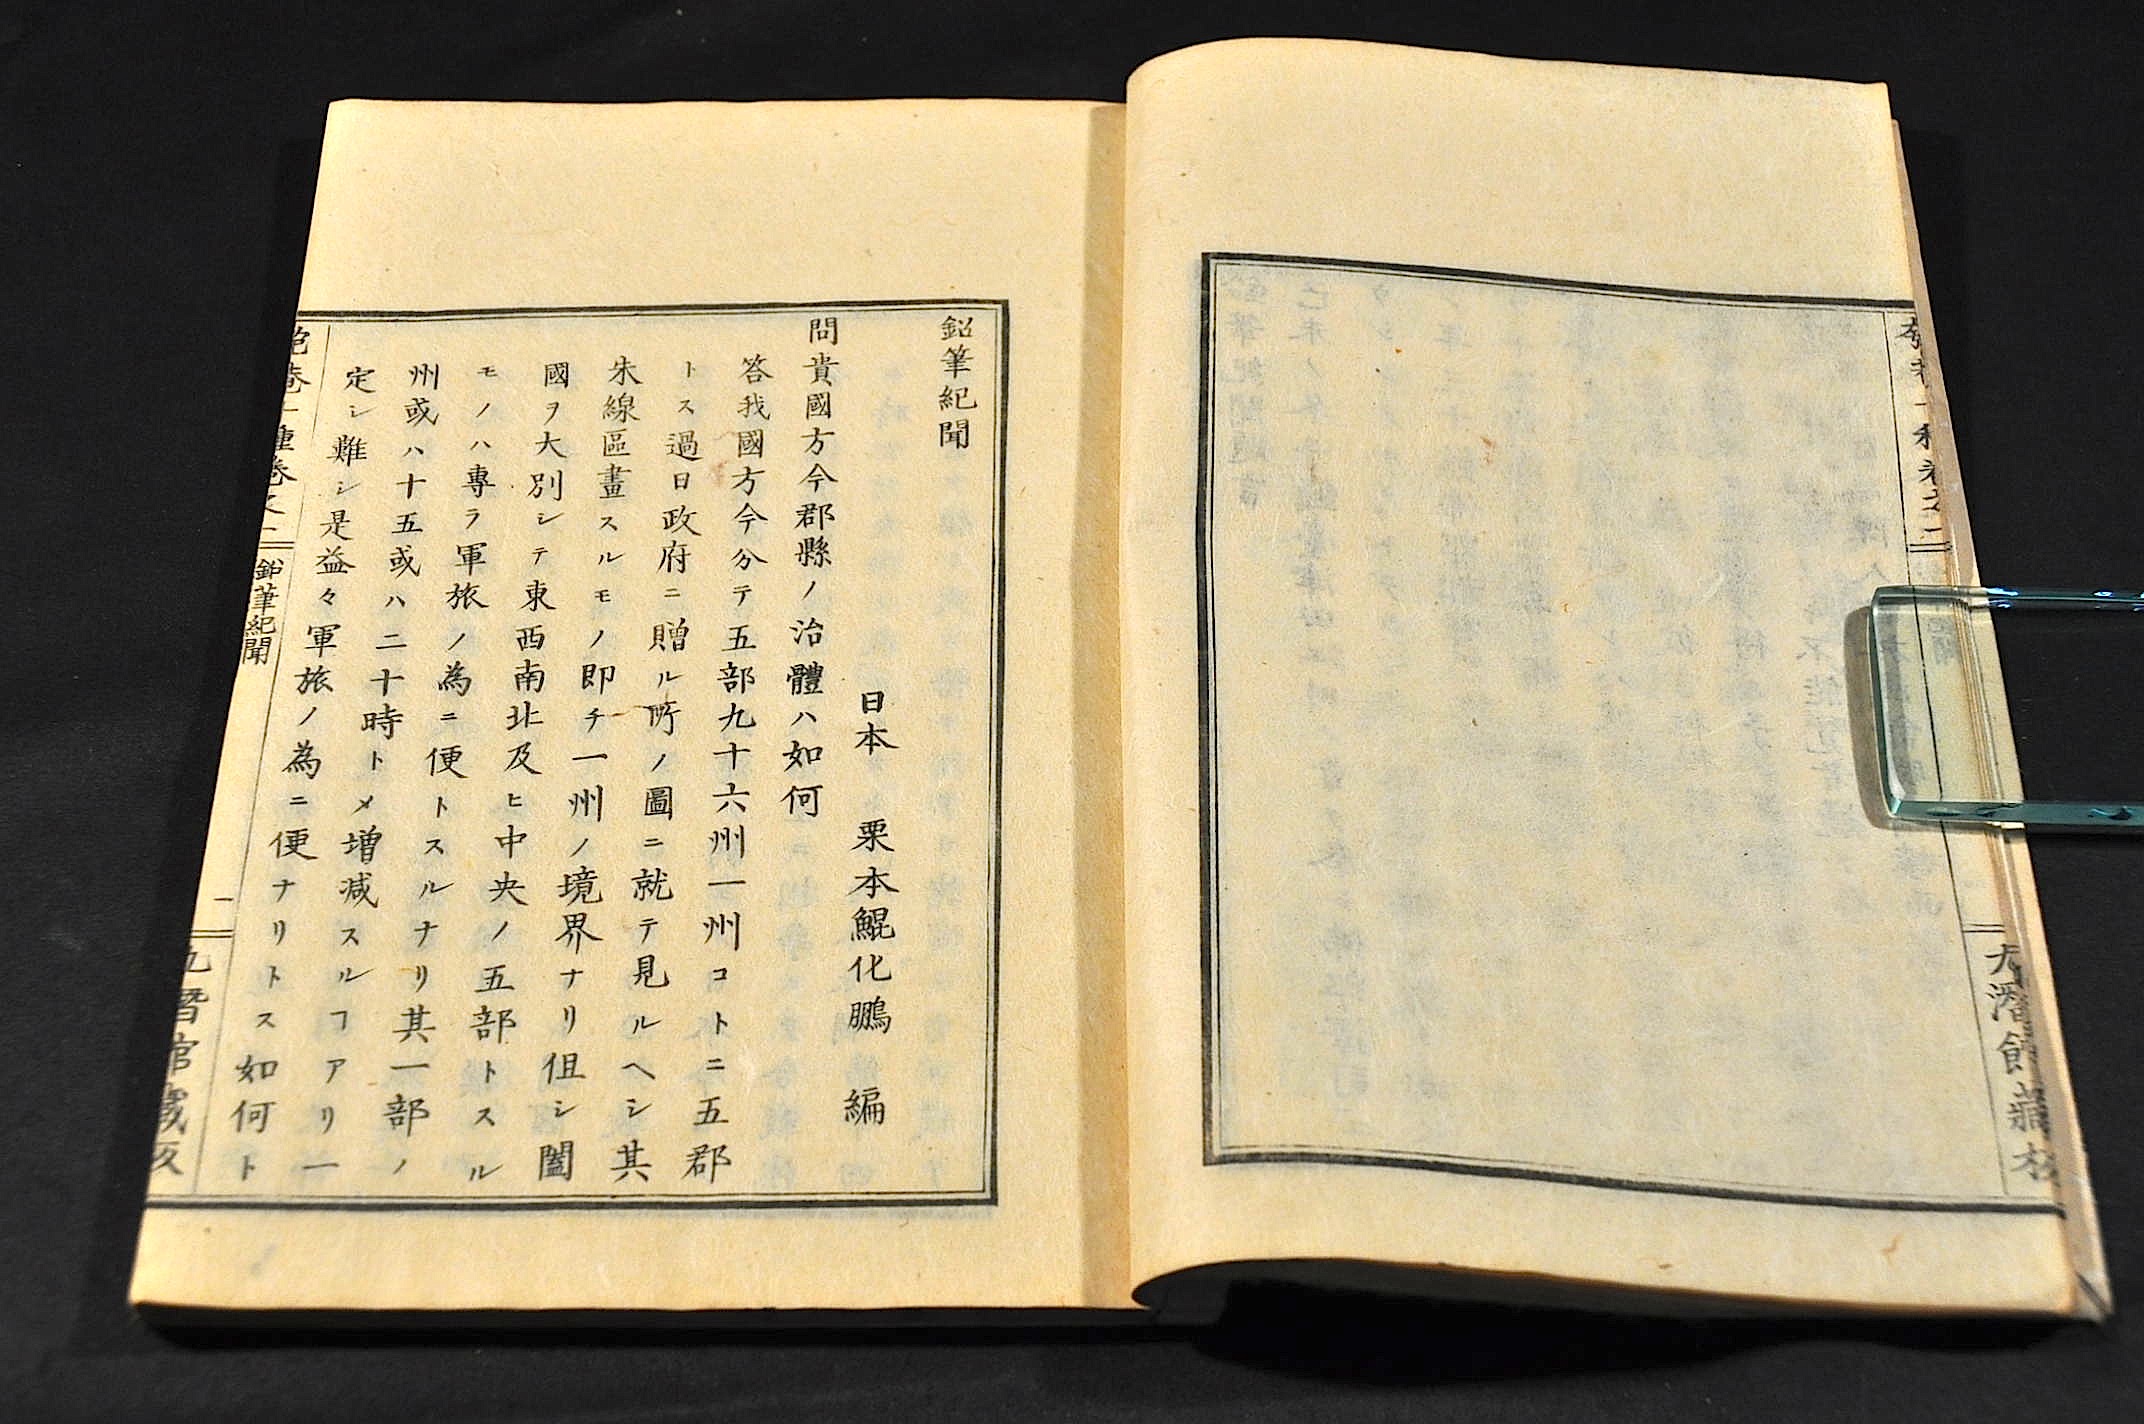 鉛筆紀聞
日本　栗本鯤化鵬　編
問貴國方今郡縣ノ治體ハ如何
答我國方今分テ五部九十六州一州コトニ五郡
トス過日政府ニ贈ル所ノ圖ニ就テ見ルヘシ其
朱線區畫スルモノ即チ一州ノ境界ナリ但シ闔
國ヲ大別シテ東西南北及ヒ中央ノ五部トスル
モノハ專ラ軍旅ノ為ニ便トスルナリ其一部ノ
州或ハ十五或ハ二十時トメ増減スルヿアリ一
定シ難シ是益々軍旅ノ為ニ便ナリトス如何ト
匏菴十種卷之一
鉛筆紀聞
一
九潛館藏版